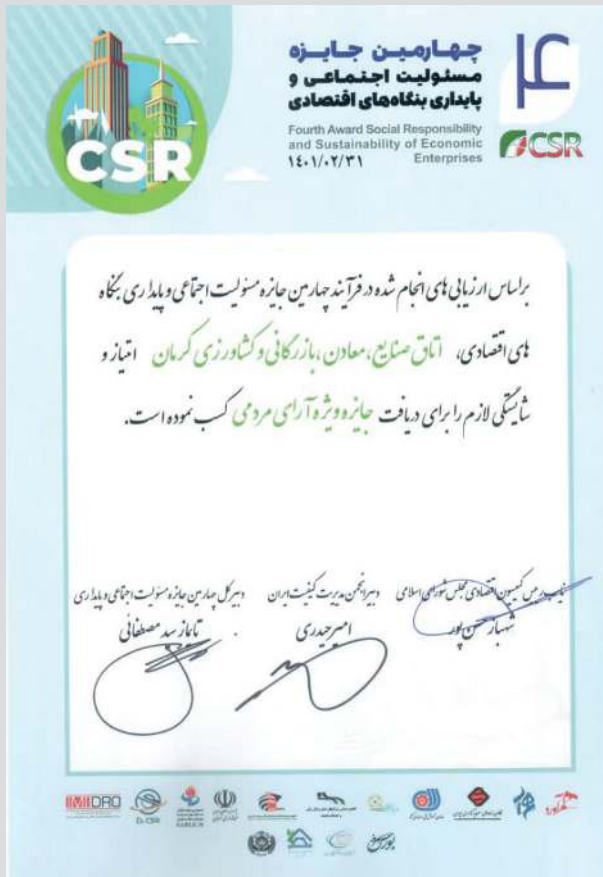 چهارمین جایزه
مسئولیت اجتماعی و
پایداری بنگاه‌های اقتصادی
Fourth Award Social Responsibility
and Sustainability of Economic
Enterprises
۱۴۰۱/۰۲/۳۱
۴
CSR
CSR
براساس ارزیابی های انجام شده در فرآیند چهارمین جایزه مسئولیت اجتماعی و پایداری بنگاه
های اقتصادی، اتاق صنایع، معادن، بازرگانی و کشاورزی کرمان امتیاز و
شایستگی لازم را برای دریافت جایزه ویژه آرای مردمی کسب نموده است.
نایب رییس کمیسیون اقتصادی مجلس شورای اسلامی
شهباز حسن پور
دبیر انجمن مدیریت کیفیت ایران
امیر حیدری
دبیر کل چهارمین جایزه مسئولیت اجتماعی و پایداری
تایماز سید مصطفائی
IMIDRO
Dr.CSR